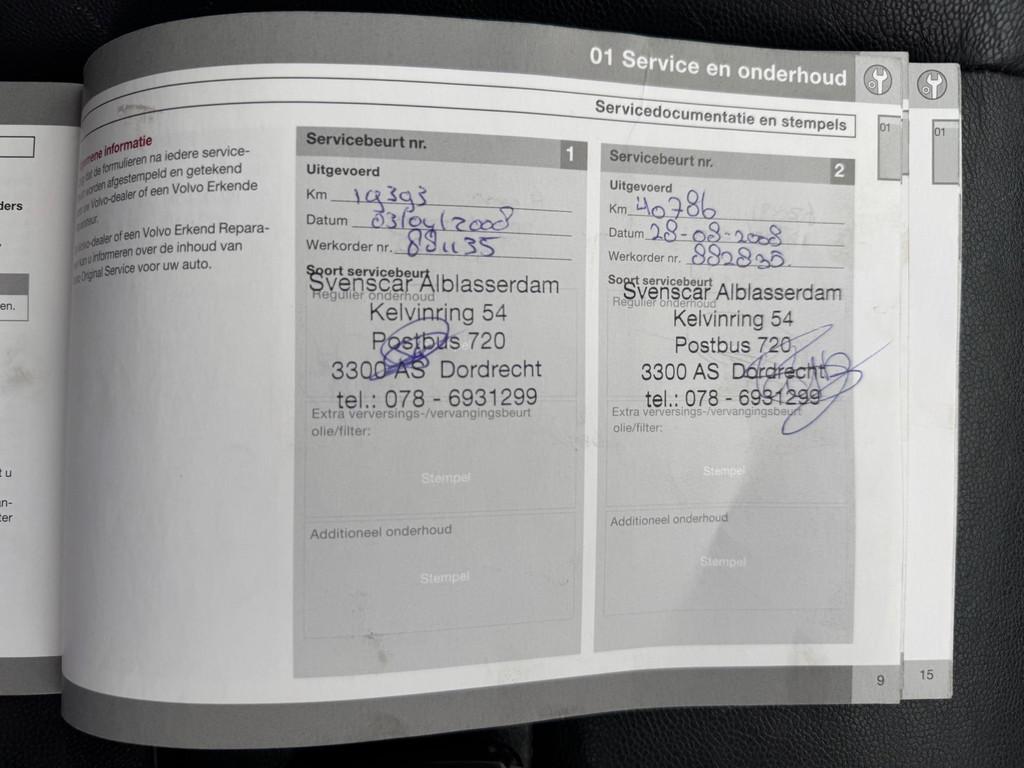 01 Service en onderhoud
Servicedocumentatie en stempels
01
01
ders
en.
t u
an-
ter
mene informatie
dat de formulieren na iedere service-
worden afgestempeld en getekend
uw Volvo-dealer of een Volvo Erkende
-dealer of een Volvo Erkend Repara-
kan u informeren over de inhoud van
Original Service voor uw auto.
Servicebeurt nr. 1
Uitgevoerd
Km 19393
Datum 03/04/2008
Werkorder nr. 891135
Soort servicebeurt
Regulier onderhoud
Svenscar Alblasserdam
Kelvinring 54
Postbus 720
3300 AS Dordrecht
tel.: 078 - 6931299
Extra verversings-/vervangingsbeurt
olie/filter:
Stempel
Additioneel onderhoud
Stempel
Servicebeurt nr. 2
Uitgevoerd
Km 40786
Datum 28-08-2008
Werkorder nr. 882835
Soort servicebeurt
Regulier onderhoud
Svenscar Alblasserdam
Kelvinring 54
Postbus 720
3300 AS Dordrecht
tel.: 078 - 6931299
Extra verversings-/vervangingsbeurt
olie/filter:
Stempel
Additioneel onderhoud
Stempel
9
15